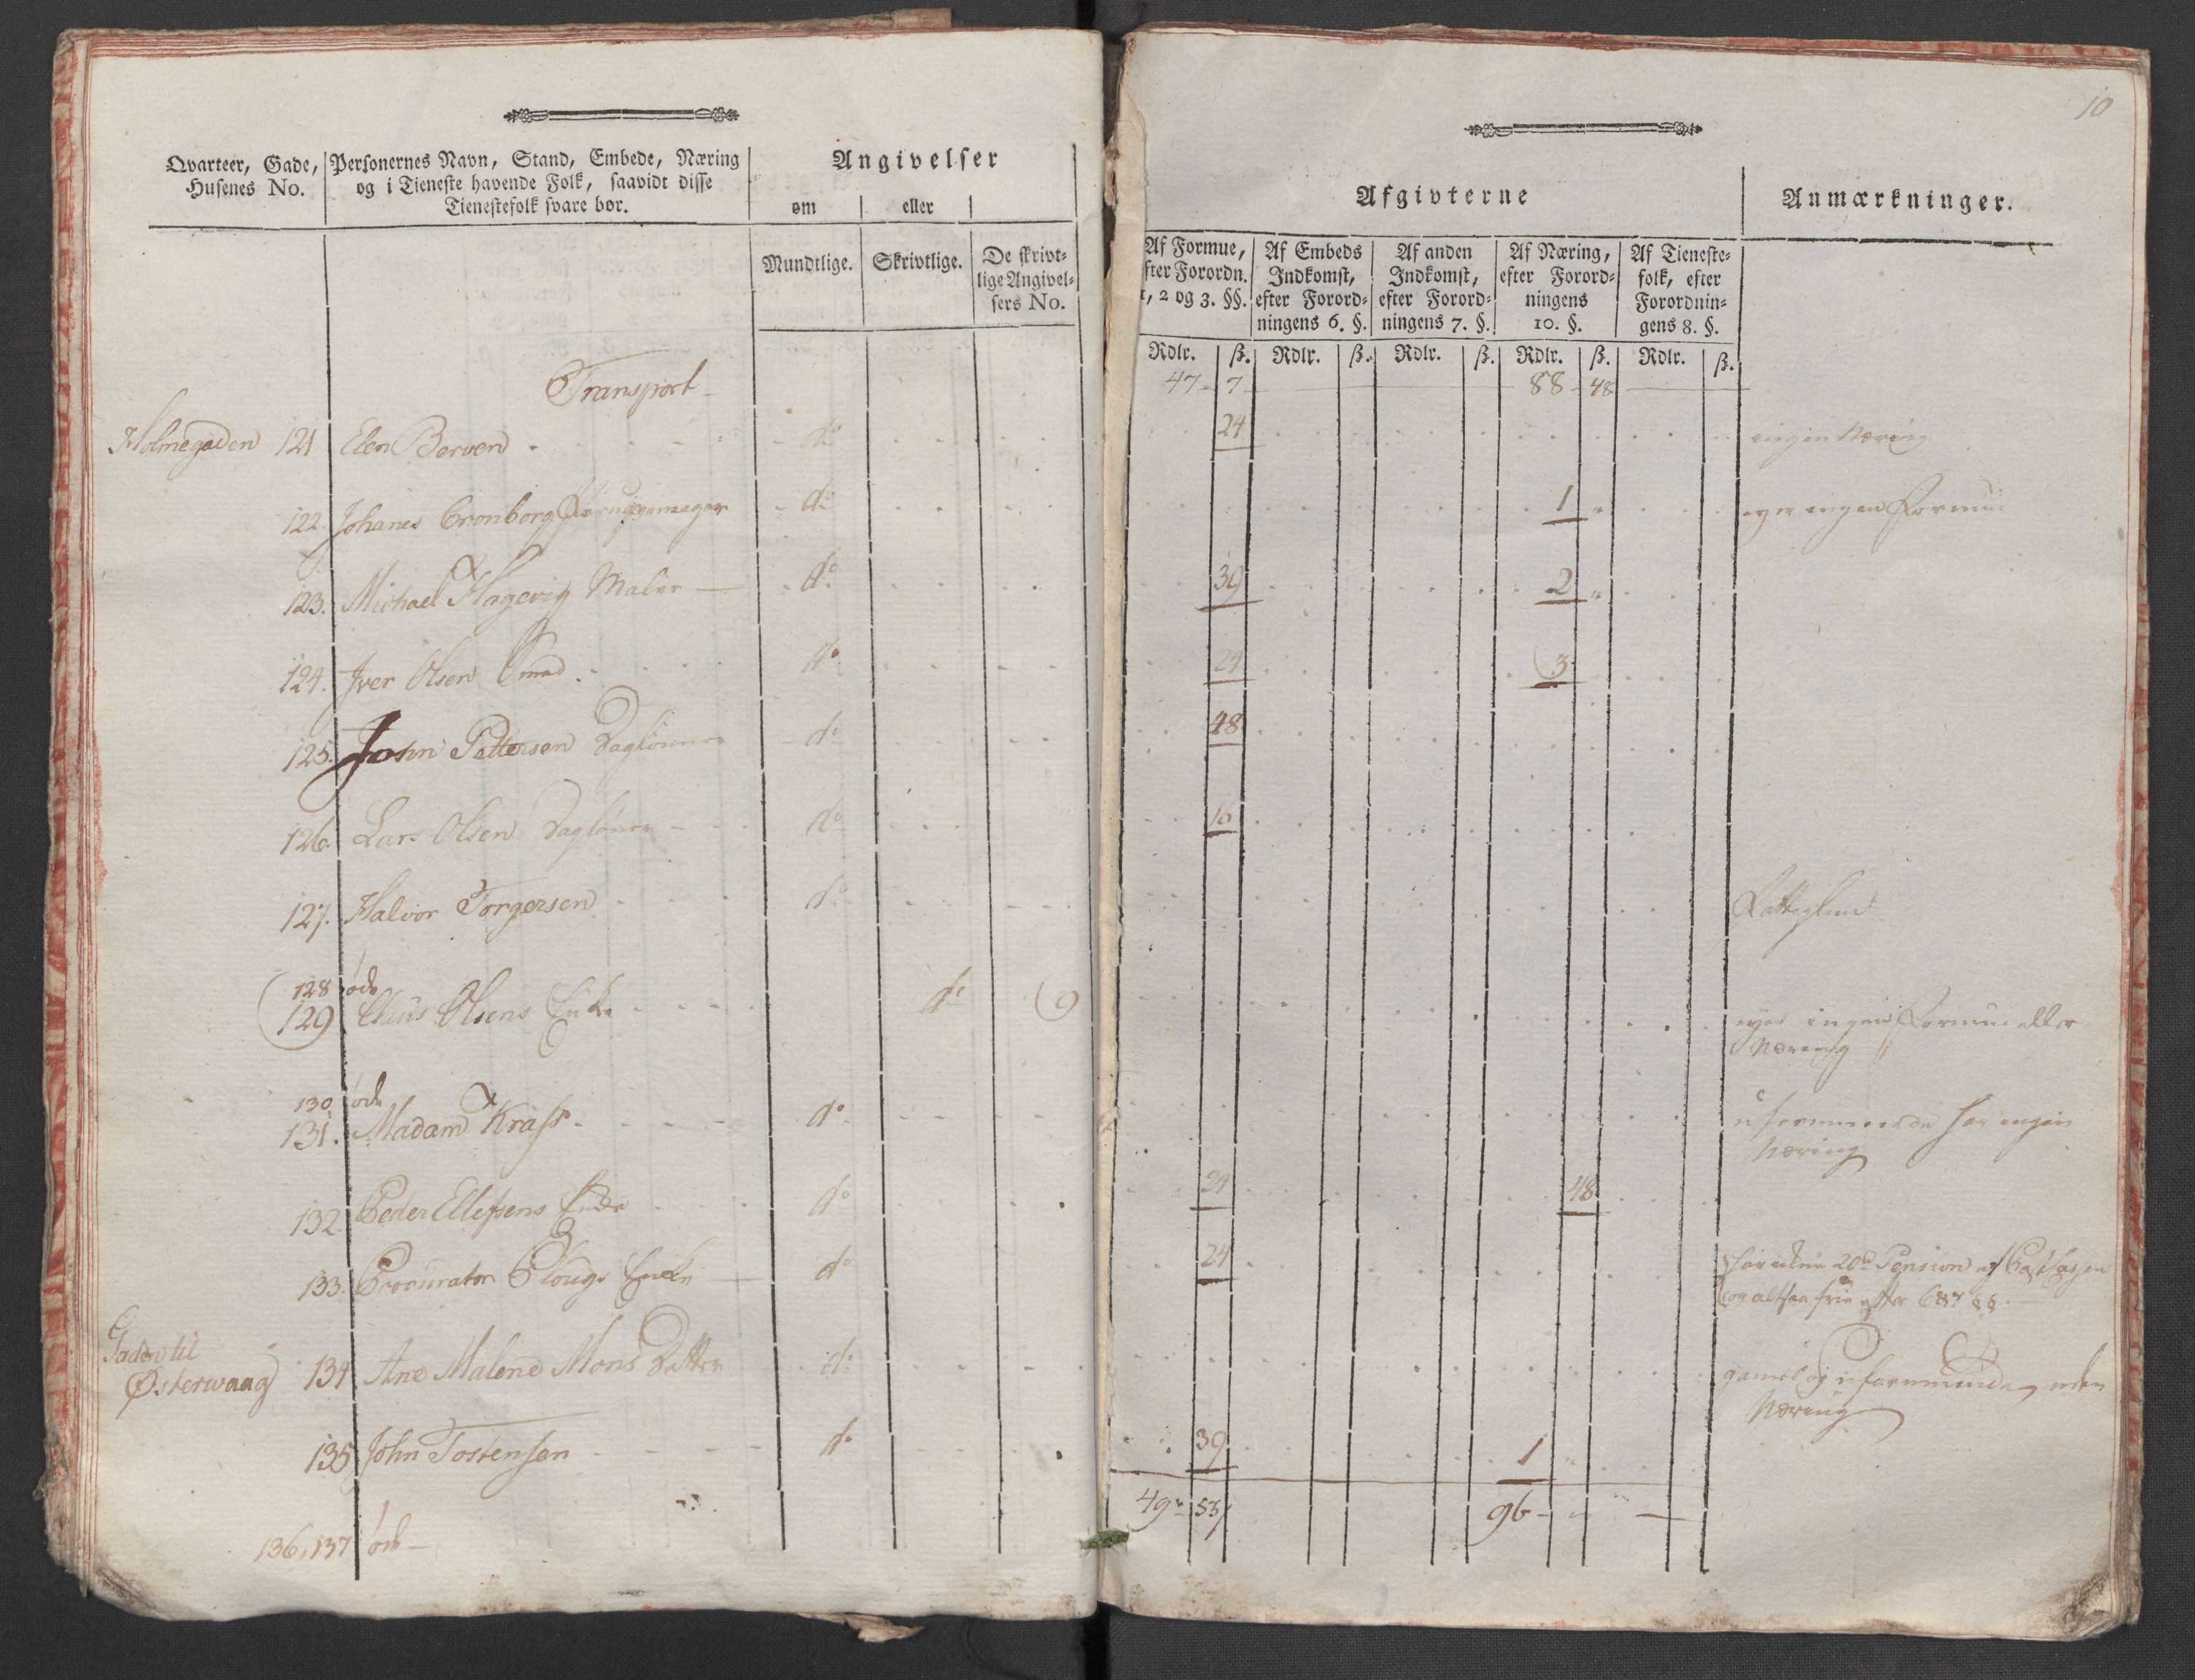 10
Qvarteer, Gade, Husenes No.
Personernes Navn, Stand, Embede, Næring og i Tieneste havende Folk, saavidt disse Tienestefolk svare bør.
Angivelser
om eller
Mundtlige. Skrivtlige. De skrivt-lige Angivel-sers No.
Afgivterne
Anmærkninger.
Af Formue, efter Forordn. 1, 2 og 3. §§.
Af Embeds Indkomst, efter Forord-ningens 6. §.
Af anden Indkomst, efter Forord-ningens 7. §.
Af Næring, efter Forord-ningens 10. §.
Af Tieneste-folk, efter Forordnin-gens 8. §.
Rdlr. ß. Rdlr. ß. Rdlr. ß. Rdlr. ß. Rdlr. ß.
Transport 47 7 88 48
Holmegaden 121 Elen Berven do 24 ingen Næring
122. Johanes Cronborg do 1 " eyer ingen Formue
123. Michael Hagevig Maler do 39 2 "
124. Iver Olsen Smed do 24 3
125. John Pettersen Daglønner do 48
126. Lars Olsen Dagløner do 16
127. Halvor Torgersen do Fattiglem
128 øde
129 Claus Olsens Enke do 9 eyer ingen Formue eller
Næring
130 øde
131. Madam Krafs do uformuende har ingen
Næring
132 Peder Ellefsens Enke do 24 48
133. Procurator Plougs Enke do 24 har ickun 20rd Pension af Postkassen
er altsaa frie efter 6 & 7 §§.
Gaden til
Østerwaag 134 Ane Malene Mons Datter do gamel og uformuende, uden
Næring
135 John Tostensen do 39 1 "
49 53 96 "
136, 137 øde